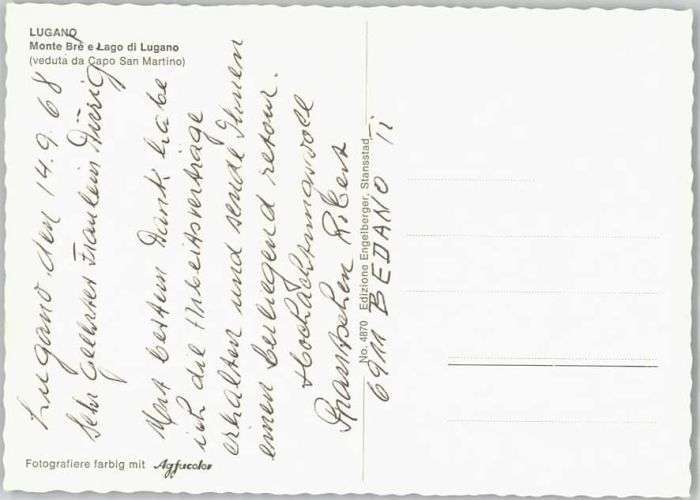 LUGANO
Monte Brè e Lago di Lugano
(veduta da Capo San Martino)
Lugano den 14.9.68
Sehr Geehrtes Fräulein Dürig
Mit bestem Dank habe
ich die Arbeitsverträge
erhalten und sende Ihnen
einen beiliegend retour.
Hochachtungsvoll
Robert
6911 BEDANO Ti
No. 4870 Edizione Engelberger, Stansstad
Fotografiere farbig mit Agfacolor